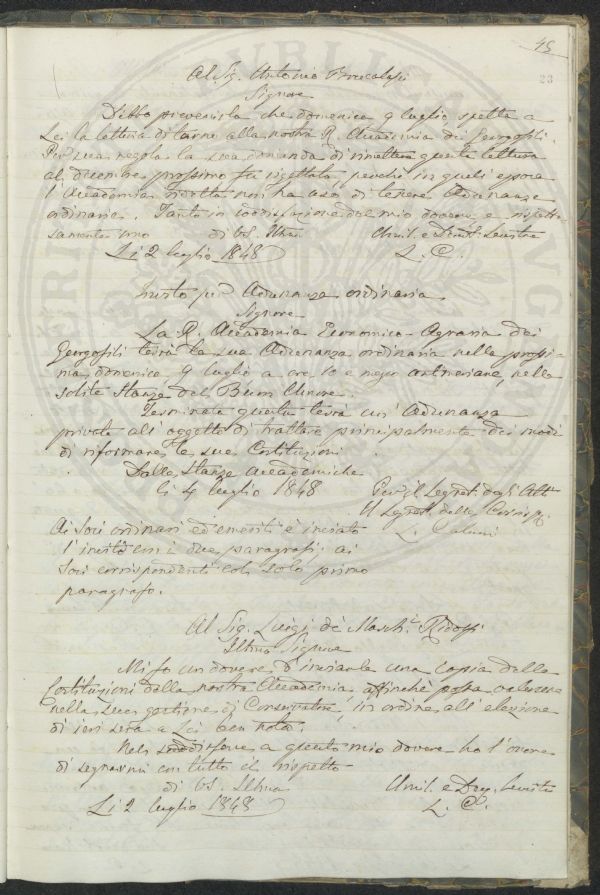 45
23
Al Sig. Antonio
Signore
Debbo prevenirla che domenica 9 luglio spetta a
Lei la lettura di turno alla nostra R. Accademia dei Georgofili.
Per sua regola la sua domanda di rimettere questa lettura
al dicembre prossimo fu rigettata, perché in quell'epoca
l'Accademia nostra non ha uso di tenere Adunanze
ordinarie. Tanto in soddisfazione del mio dovere e rispetto-
samente sono di VS. Illma Umil. e Servitore
Li 2 luglio 1848 L. C.
Invito per Adunanza ordinaria
Signore
La R. Accademia Economico-Agraria dei
Georgofili terrà la sua Adunanza ordinaria nella prossi-
ma domenica 9 luglio a ore 10 e mezzo antimeridiane, nelle
solite Stanze del Buon Umore.
Terminata questa terrà un'Adunanza
privata all'oggetto di trattare principalmente dei modi
di riformare le sue Costituzioni
Dalle Stanze Accademiche
li 4 luglio 1848 Per il Segret. degli Atti
Il Segret. delle Corrisp.
L. Calamai
Ai Soci ordinari ed emeriti è inviato
l'invito con i due paragrafi; ai
Soci corrispondenti col solo primo
paragrafo.
Al Sig. Luigi de' March. Ridolfi
Illmo Signore
Mi fo un dovere d'inviarle una copia delle
Costituzioni della nostra Accademia, affinchè possa valersene
nella sua gestione di Conservatore, in ordine all'elezione
di ieri sera a Lei ben nota.
Nel soddisfare a questo mio dovere ho l'onore
di segnarmi con tutto il rispetto
di VS. Illma Umil. e Dev. Servitore
Li 2 luglio 1848 L. C.